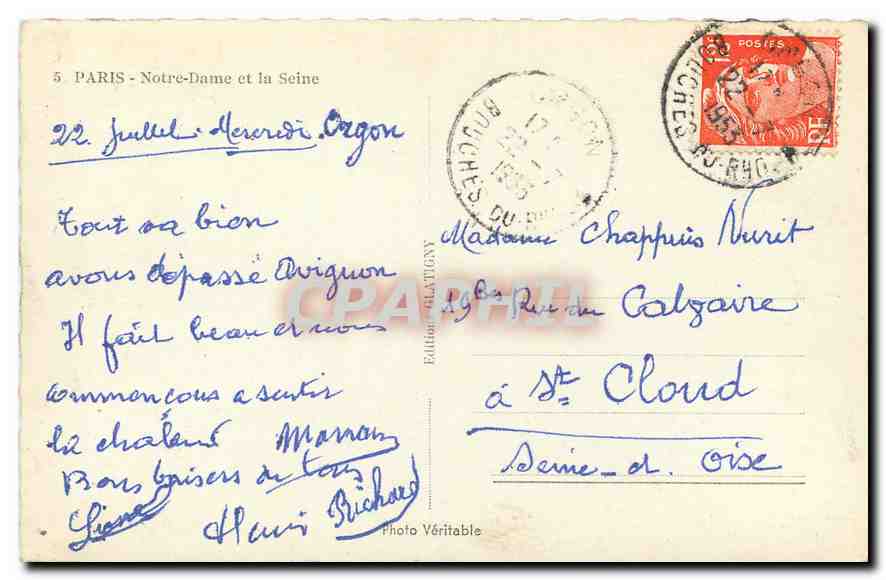 5 PARIS - Notre-Dame et la Seine
22 Juillet. Mercredi. Orgon
Tout va bien
avons dépassé Avignon
Il fait beau et nous
commençons a sentir
la chaleur Maman
Bons baisers de tous
Henri Richard
Edition GLATIGNY
Photo Véritable
CPAPHIL
ORGON
17
22
1953
BOUCHES DU RHÔNE
POSTES
RF
22
1953
BOUCHES DU-RHONE
Madame Chappuis Nurit
19 bis Rue du Calvaire
à St Cloud
Seine-et-Oise